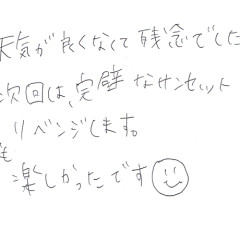 天気が良くなくて残念でした
次回は、完璧なサンセット
リベンジします。
も
楽しかったです